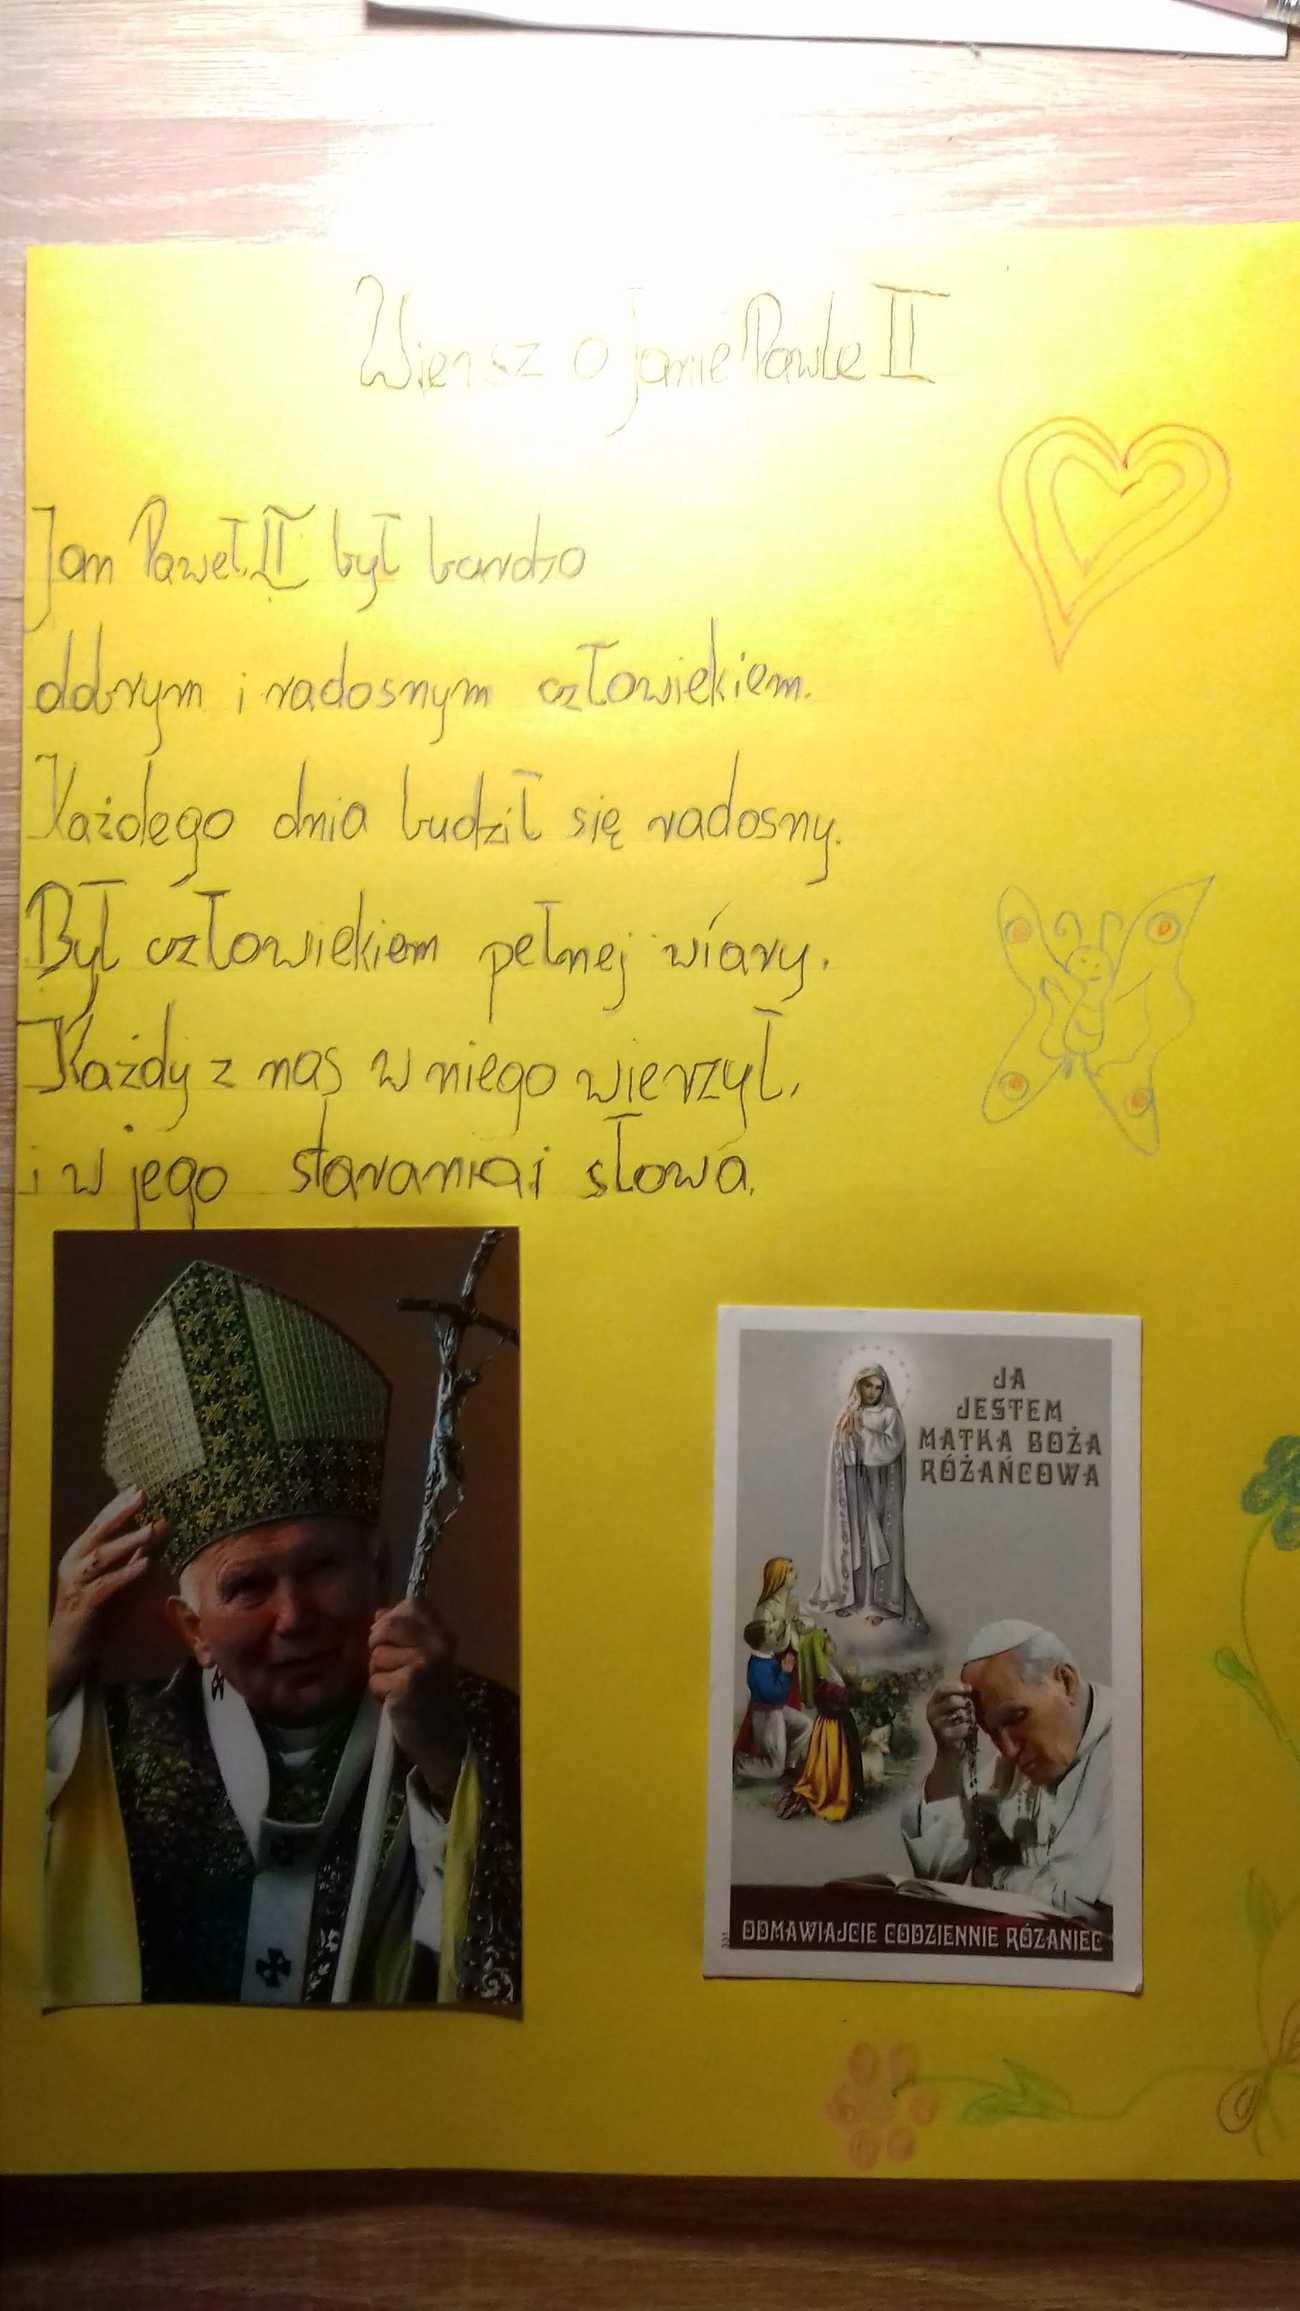 Wiersz o Janie Pawle II
Jan Paweł II był bardzo
dobrym i radosnym człowiekiem.
Każdego dnia budził się radosny.
Był człowiekiem pełnej wiary.
Każdy z nas w niego wierzył,
i w jego starania i słowa.
JA
JESTEM
MATKA BOŻA
RÓŻAŃCOWA
ODMAWIAJCIE CODZIENNIE RÓŻANIEC